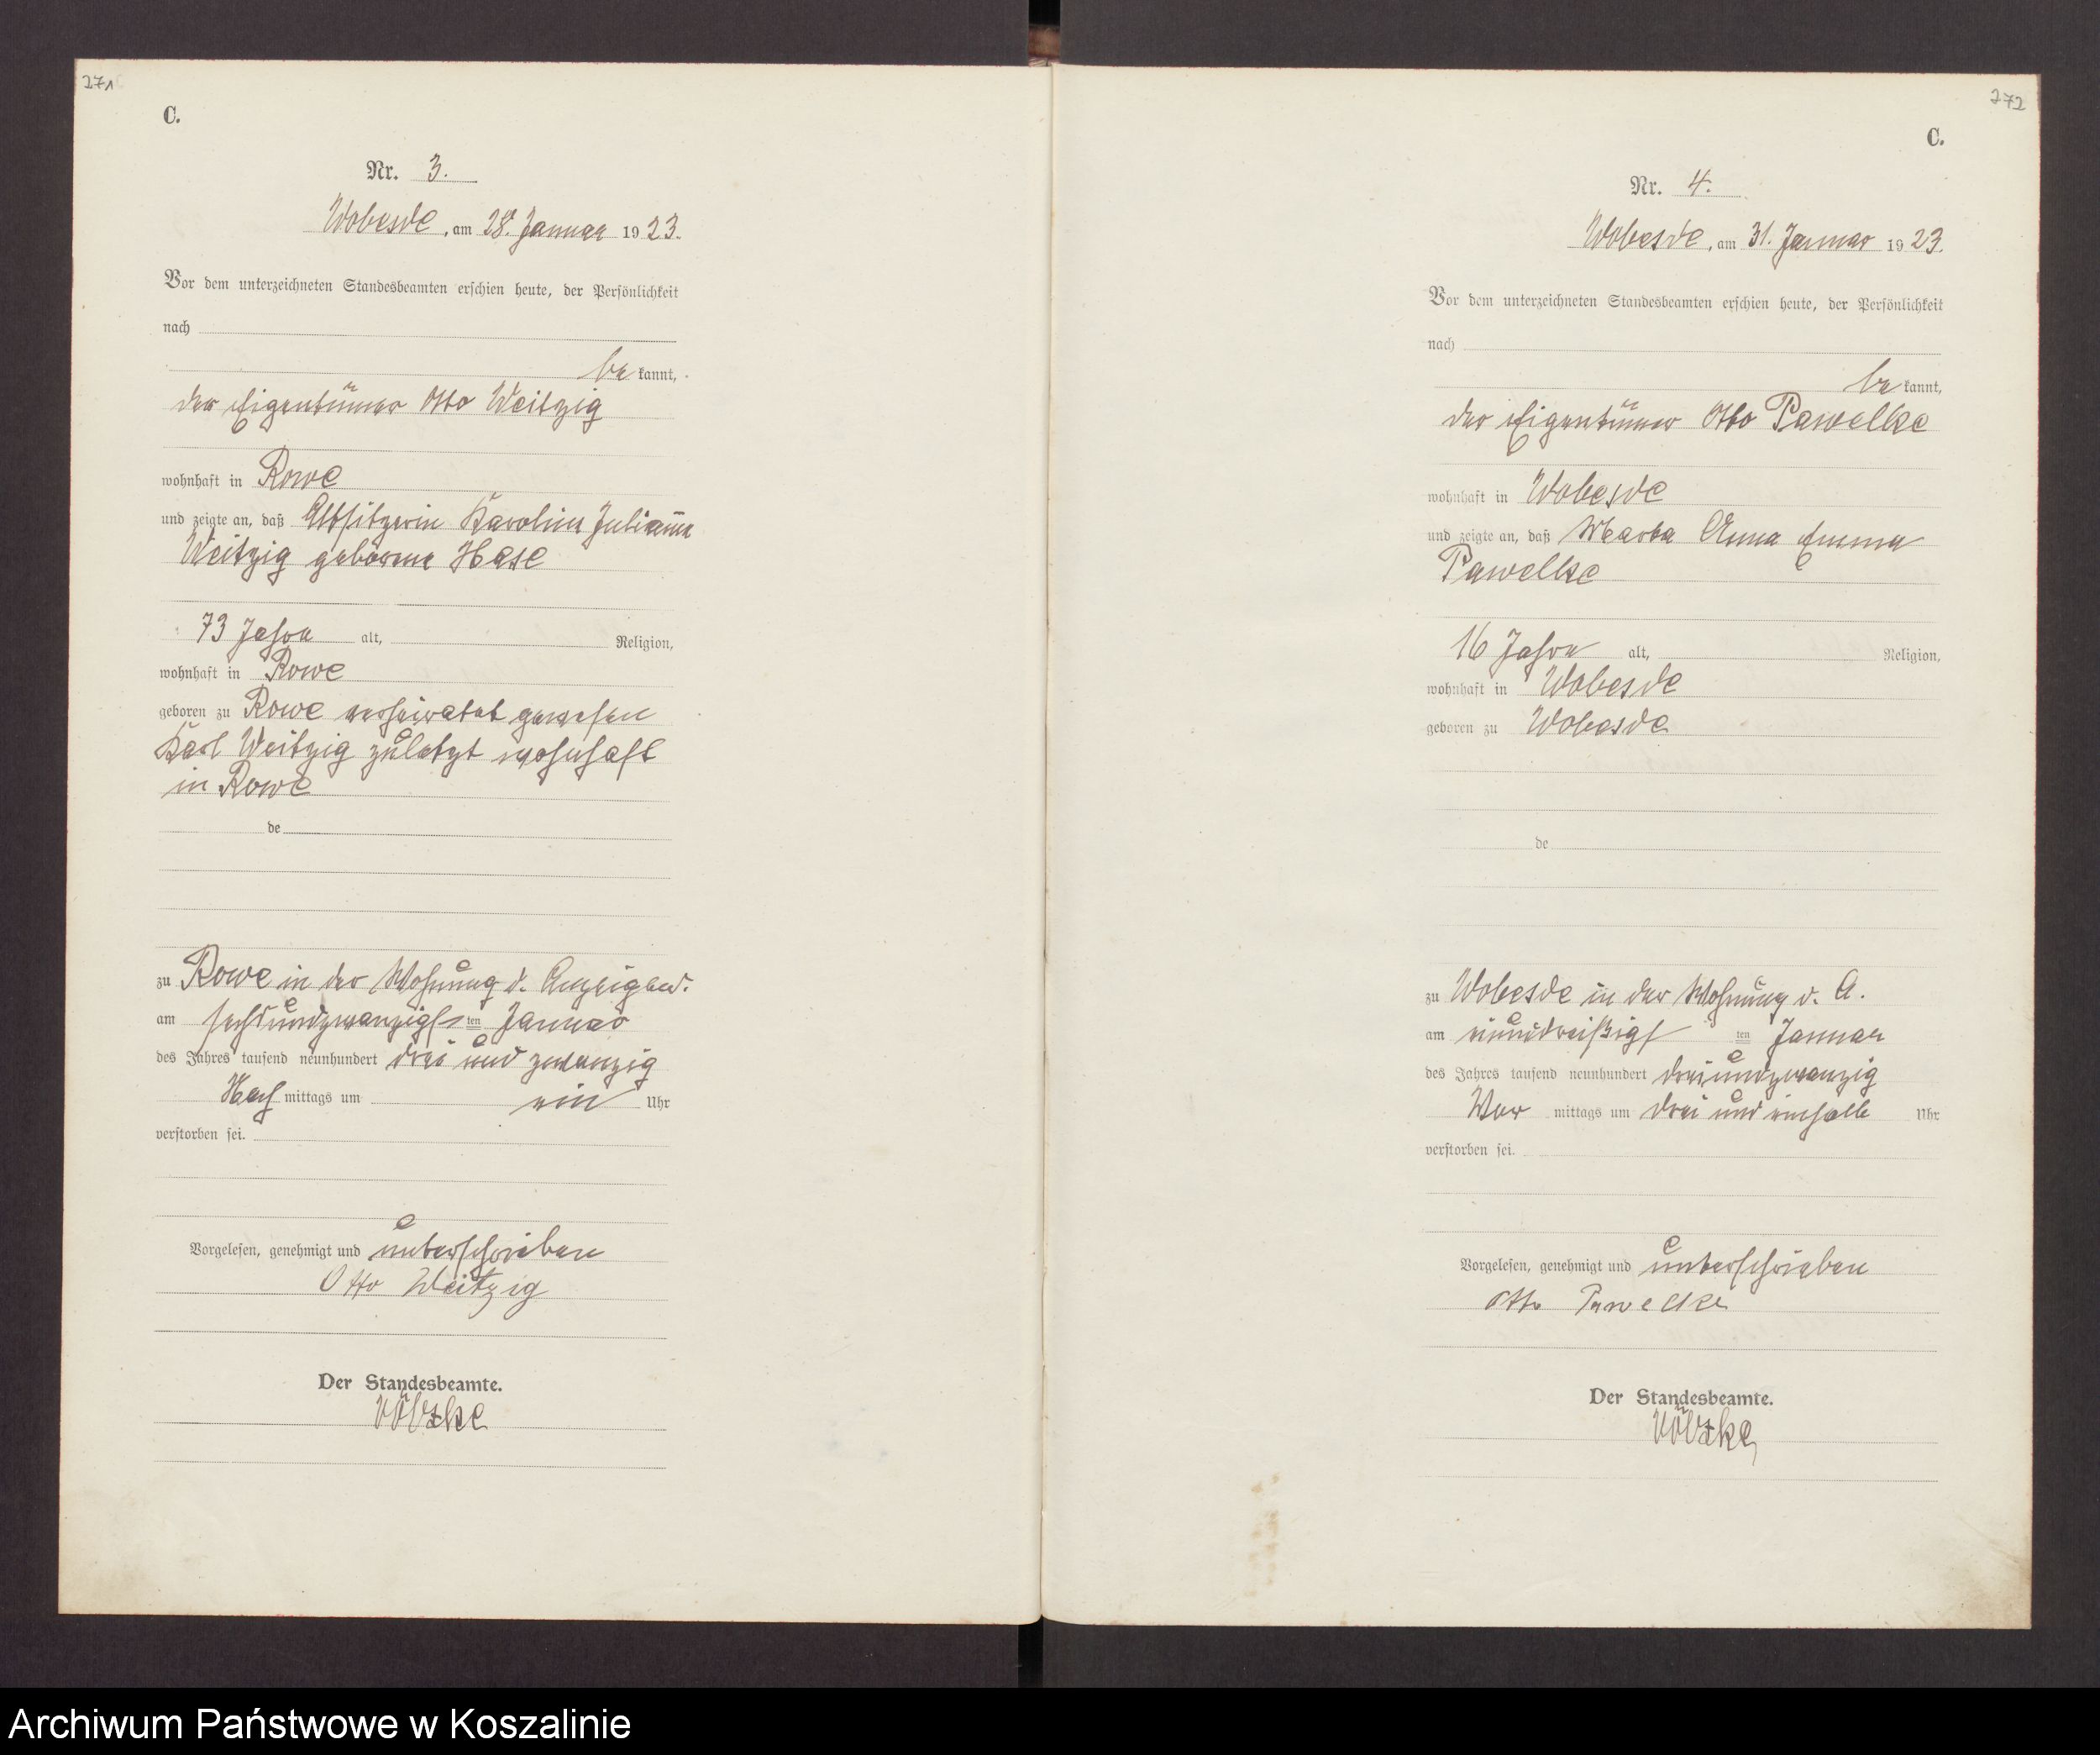 271
C.
Nr. 3.
Wobesde, am 28. Januar 1923.
Vor dem unterzeichneten Standesbeamten erschien heute, der Persönlichkeit
nach
be kannt,
der Eigentümer Otto Weitzig
wohnhaft in Rowe
und zeigte an, daß Altsitzerin Karoline Julianne
Weitzig geborene Hase
73 Jahre alt, Religion,
wohnhaft in Rowe
geboren zu Rowe verheiratet gewesen
Karl Weitzig zuletzt wohnhaft
in Rowe
de
zu Rowe in der Wohnung d. Anzeigend.
am sechsundzwanzigs ten Januar
des Jahres tausend neunhundert drei und zwanzig
Nach mittags um ein Uhr
verstorben sei.
Vorgelesen, genehmigt und unterschrieben
Otto Weitzig
Der Standesbeamte.
Völzke
272
C.
Nr. 4.
Wobesde, am 31. Januar 1923.
Vor dem unterzeichneten Standesbeamten erschien heute, der Persönlichkeit
nach
be kannt,
der Eigentümer Otto Pawelke
wohnhaft in Wobesde
und zeigte an, daß Marta Anna Emma
Pawelke
16 Jahre alt, Religion,
wohnhaft in Wobesde
geboren zu Wobesde
de
zu Wobesde in der Wohnung d. A.
am einunddreißigs ten Januar
des Jahres tausend neunhundert dreiundzwanzig
Vor mittags um drei und einhalb Uhr
verstorben sei.
Vorgelesen, genehmigt und unterschrieben
Otto Pawelke
Der Standesbeamte.
Völzke
Archiwum Państwowe w Koszalinie